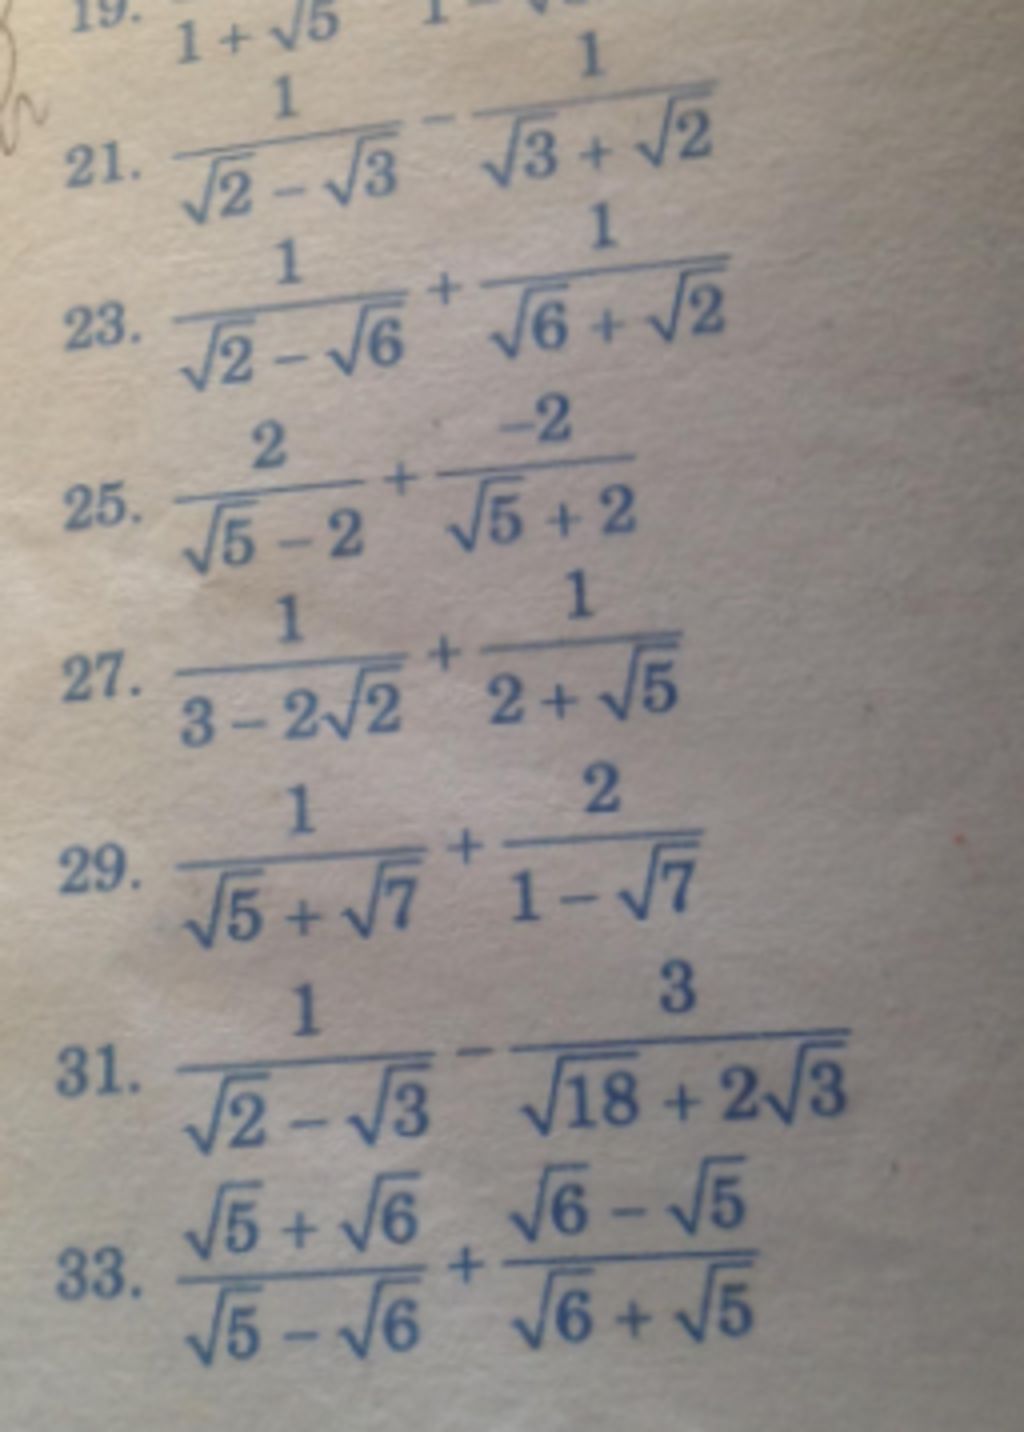 19. 1 + √5 1 -
21. 1/(√2 - √3) - 1/(√3 + √2)
23. 1/(√2 - √6) + 1/(√6 + √2)
25. 2/(√5 - 2) + -2/(√5 + 2)
27. 1/(3 - 2√2) + 1/(2 + √5)
29. 1/(√5 + √7) + 2/(1 - √7)
31. 1/(√2 - √3) - 3/(√18 + 2√3)
33. (√5 + √6)/(√5 - √6) + (√6 - √5)/(√6 + √5)